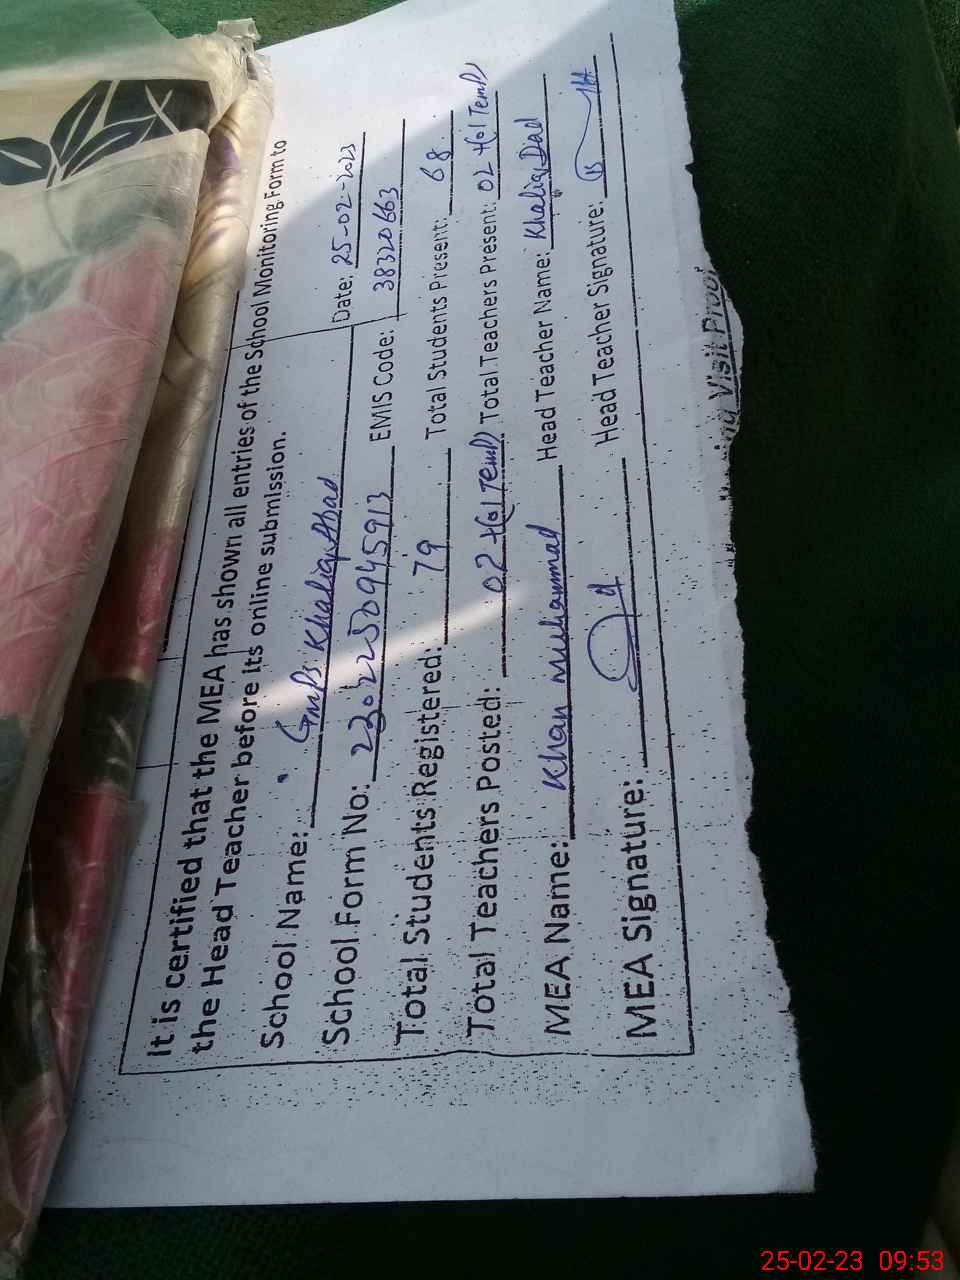 It is certified that the MEA has shown all entries of the School Monitoring Form to
the Head Teacher before its online submission.
School Name: GMPS Khaliq Abad Date: 25-02-2023
School Form No: 2302250945913 EMIS Code: 38320663
Total Students Registered: 79 Total Students Present: 68
Total Teachers Posted: 02+(01 Temp) Total Teachers Present: 02+(01 Temp)
MEA Name: Khan Muhammad Head Teacher Name: Khaliq Dad
MEA Signature: Head Teacher Signature:
Visit Proof
25-02-23 09:53